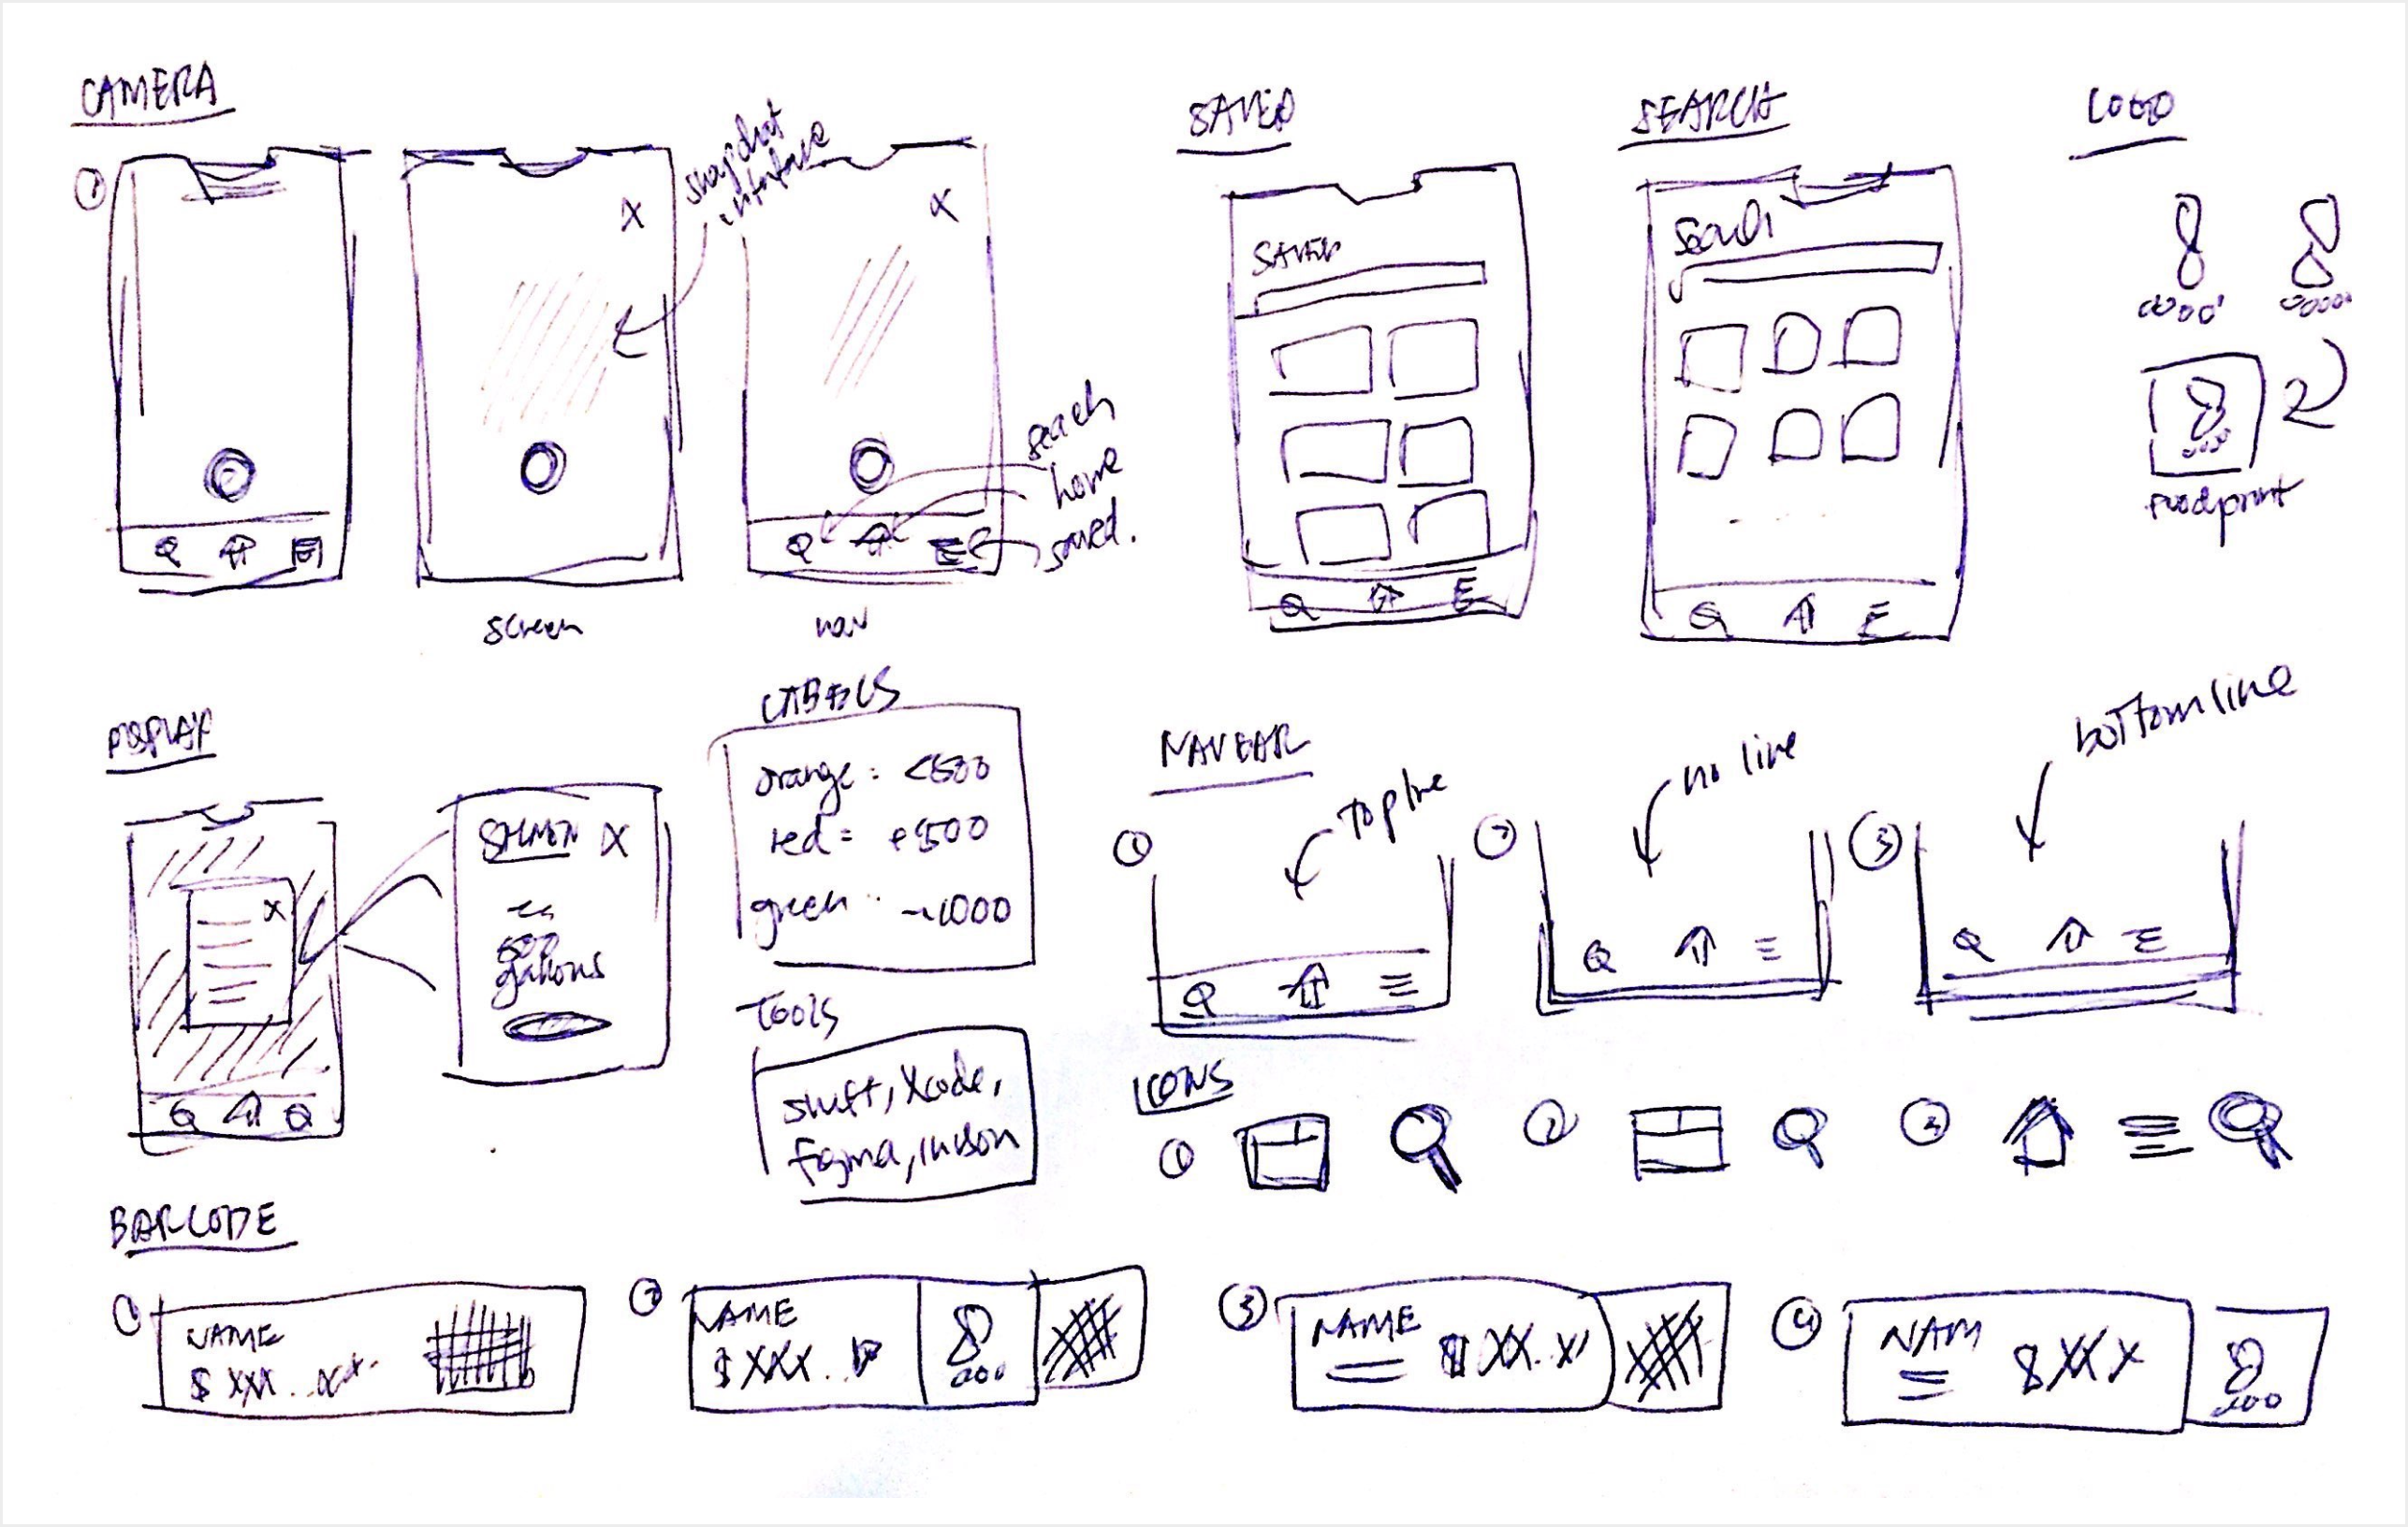 CAMERA
①
X
snapshot
interface
X
search
home
saved.
screen
nav
SAVED
SAVED
SEARCH
Search
LOGO
foodprint
DISPLAY
X
X
500
gallons
LABELS
orange: <500
red = +500
green ~1000
TOOLS
swift, Xcode,
figma, invision
NAVBAR
① top line
② no line
③ bottom line
ICONS
①
②
BARCODE
①
NAME
$ XXX
②
NAME
$ XXX
③
NAME
$ XX.X
④
NAM
$ XXX